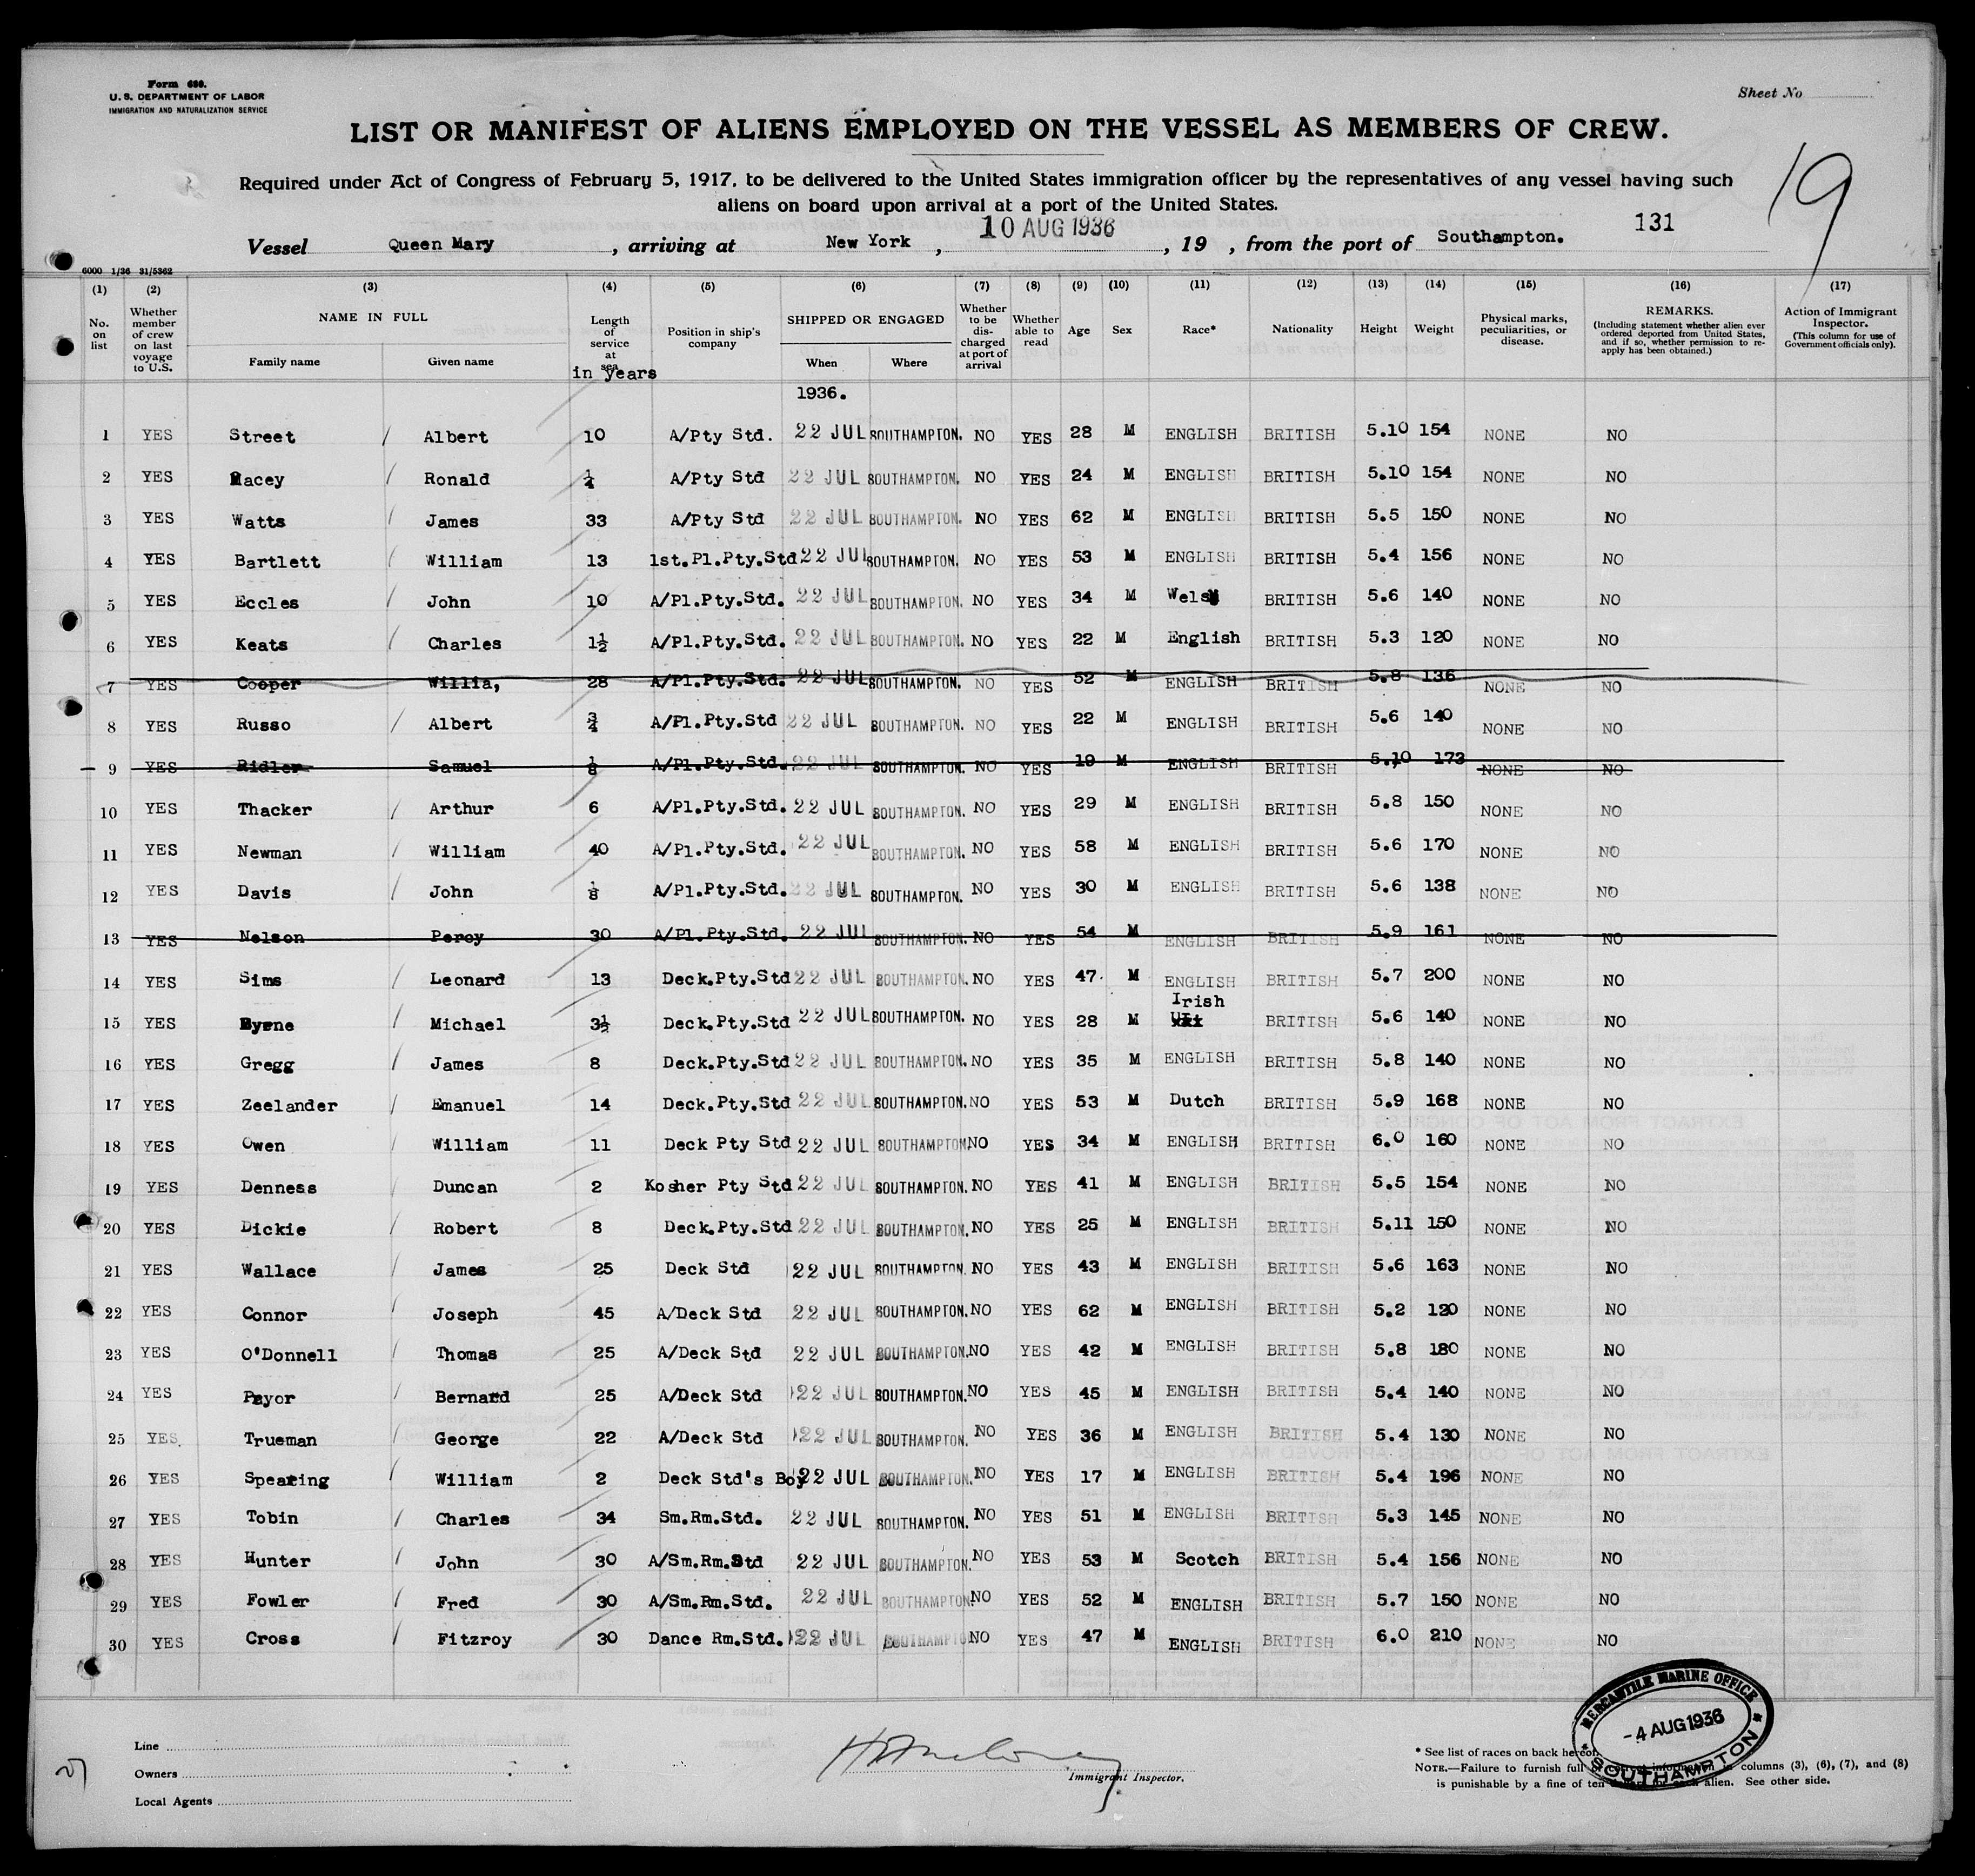 Form 680.
U. S. DEPARTMENT OF LABOR
IMMIGRATION AND NATURALIZATION SERVICE
Sheet No
LIST OR MANIFEST OF ALIENS EMPLOYED ON THE VESSEL AS MEMBERS OF CREW.
19
Required under Act of Congress of February 5, 1917, to be delivered to the United States immigration officer by the representatives of any vessel having such
aliens on board upon arrival at a port of the United States.
131
Vessel Queen Mary, arriving at New York, 10 AUG 1936, 19 , from the port of Southampton.
6000 1/36 31/5362
(1) (2) (3) (4) (5) (6) (7) (8) (9) (10) (11) (12) (13) (14) (15) (16) (17)
No. on list
Whether member of crew on last voyage to U.S.
NAME IN FULL
Family name Given name
Length of service at sea
in years
Position in ship's company
SHIPPED OR ENGAGED
When Where
Whether to be discharged at port of arrival
Whether able to read
Age
Sex
Race*
Nationality
Height
Weight
Physical marks, peculiarities, or disease.
REMARKS.
(Including statement whether alien ever ordered deported from United States, and if so, whether permission to re-apply has been obtained.)
Action of Immigrant Inspector.
(This column for use of Government officials only).
1936.
1 YES Street / Albert 10 A/Pty Std. 22 JUL SOUTHAMPTON. NO YES 28 M ENGLISH BRITISH 5.10 154 NONE NO
2 YES Macey / Ronald ¼ A/Pty Std 22 JUL SOUTHAMPTON. NO YES 24 M ENGLISH BRITISH 5.10 154 NONE NO
3 YES Watts / James 33 A/Pty Std 22 JUL SOUTHAMPTON. NO YES 62 M ENGLISH BRITISH 5.5 150 NONE NO
4 YES Bartlett / William 13 1st.Pl.Pty.Std 22 JUL SOUTHAMPTON. NO YES 53 M ENGLISH BRITISH 5.4 156 NONE NO
5 YES Eccles / John 10 A/Pl.Pty.Std. 22 JUL SOUTHAMPTON. NO YES 34 M Welsh BRITISH 5.6 140 NONE NO
6 YES Keats / Charles 1½ A/Pl.Pty.Std. 22 JUL SOUTHAMPTON. NO YES 22 M English BRITISH 5.3 120 NONE NO
7 YES Cooper Willia, 28 A/Pl.Pty.Std. 22 JUL SOUTHAMPTON. NO YES 52 M ENGLISH BRITISH 5.8 136 NONE NO
8 YES Russo / Albert ¾ A/Pl.Pty.Std 22 JUL SOUTHAMPTON. NO YES 22 M ENGLISH BRITISH 5.6 140 NONE NO
9 YES Ridler Samuel ⅛ A/Pl.Pty.Std. 22 JUL SOUTHAMPTON. NO YES 19 M ENGLISH BRITISH 5.10 173 NONE NO
10 YES Thacker / Arthur 6 A/Pl.Pty.Std. 22 JUL SOUTHAMPTON. NO YES 29 M ENGLISH BRITISH 5.8 150 NONE NO
11 YES Newman / William 40 A/Pl.Pty.Std. 22 JUL SOUTHAMPTON. NO YES 58 M ENGLISH BRITISH 5.6 170 NONE NO
12 YES Davis / John ⅛ A/Pl.Pty.Std. 22 JUL SOUTHAMPTON. NO YES 30 M ENGLISH BRITISH 5.6 138 NONE NO
13 YES Nelson Percy 30 A/Pl.Pty.Std. 22 JUL SOUTHAMPTON. NO YES 54 M ENGLISH BRITISH 5.9 161 NONE NO
14 YES Sims / Leonard 13 Deck.Pty.Std 22 JUL SOUTHAMPTON. NO YES 47 M ENGLISH BRITISH 5.7 200 NONE NO
15 YES Byrne / Michael 3½ Deck.Pty.Std 22 JUL SOUTHAMPTON. NO YES 28 M Irish BRITISH 5.6 140 NONE NO
16 YES Gregg / James 8 Deck.Pty.Std 22 JUL SOUTHAMPTON. NO YES 35 M ENGLISH BRITISH 5.8 140 NONE NO
17 YES Zeelander / Emanuel 14 Deck.Pty.Std 22 JUL SOUTHAMPTON. NO YES 53 M Dutch BRITISH 5.9 168 NONE NO
18 YES Owen / William 11 Deck Pty Std 22 JUL SOUTHAMPTON. NO YES 34 M ENGLISH BRITISH 6.0 160 NONE NO
19 YES Denness / Duncan 2 Kosher Pty Std 22 JUL SOUTHAMPTON. NO YES 41 M ENGLISH BRITISH 5.5 154 NONE NO
20 YES Dickie / Robert 8 Deck.Pty.Std 22 JUL SOUTHAMPTON. NO YES 25 M ENGLISH BRITISH 5.11 150 NONE NO
21 YES Wallace / James 25 Deck Std 22 JUL SOUTHAMPTON. NO YES 43 M ENGLISH BRITISH 5.6 163 NONE NO
22 YES Connor / Joseph 45 A/Deck Std 22 JUL SOUTHAMPTON. NO YES 62 M ENGLISH BRITISH 5.2 120 NONE NO
23 YES O'Donnell / Thomas 25 A/Deck Std 22 JUL SOUTHAMPTON. NO YES 42 M ENGLISH BRITISH 5.8 180 NONE NO
24 YES Pryor / Bernard 25 A/Deck Std 22 JUL SOUTHAMPTON. NO YES 45 M ENGLISH BRITISH 5.4 140 NONE NO
25 YES. Trueman / George 22 A/Deck Std 22 JUL SOUTHAMPTON. NO YES 36 M ENGLISH BRITISH 5.4 130 NONE NO
26 YES Spearing / William 2 Deck Std's Boy 22 JUL SOUTHAMPTON. NO YES 17 M ENGLISH BRITISH 5.4 196 NONE NO
27 YES Tobin / Charles 34 Sm.Rm.Std. 22 JUL SOUTHAMPTON. NO YES 51 M ENGLISH BRITISH 5.3 145 NONE NO
28 YES Hunter / John 30 A/Sm.Rm.Std 22 JUL SOUTHAMPTON. NO YES 53 M Scotch BRITISH 5.4 156 NONE NO
29 YES Fowler / Fred 30 A/Sm.Rm.Std. 22 JUL SOUTHAMPTON. NO YES 52 M ENGLISH BRITISH 5.7 150 NONE NO
30 YES Cross / Fitzroy 30 Dance Rm.Std. 22 JUL SOUTHAMPTON NO YES 47 M ENGLISH BRITISH 6.0 210 NONE NO
Line
Owners
Local Agents
Immigrant Inspector.
MERCANTILE MARINE OFFICE
-4 AUG 1936
SOUTHAMPTON
* See list of races on back hereof.
NOTE.—Failure to furnish full or correct information in columns (3), (6), (7), and (8)
is punishable by a fine of ten dollars for each alien. See other side.